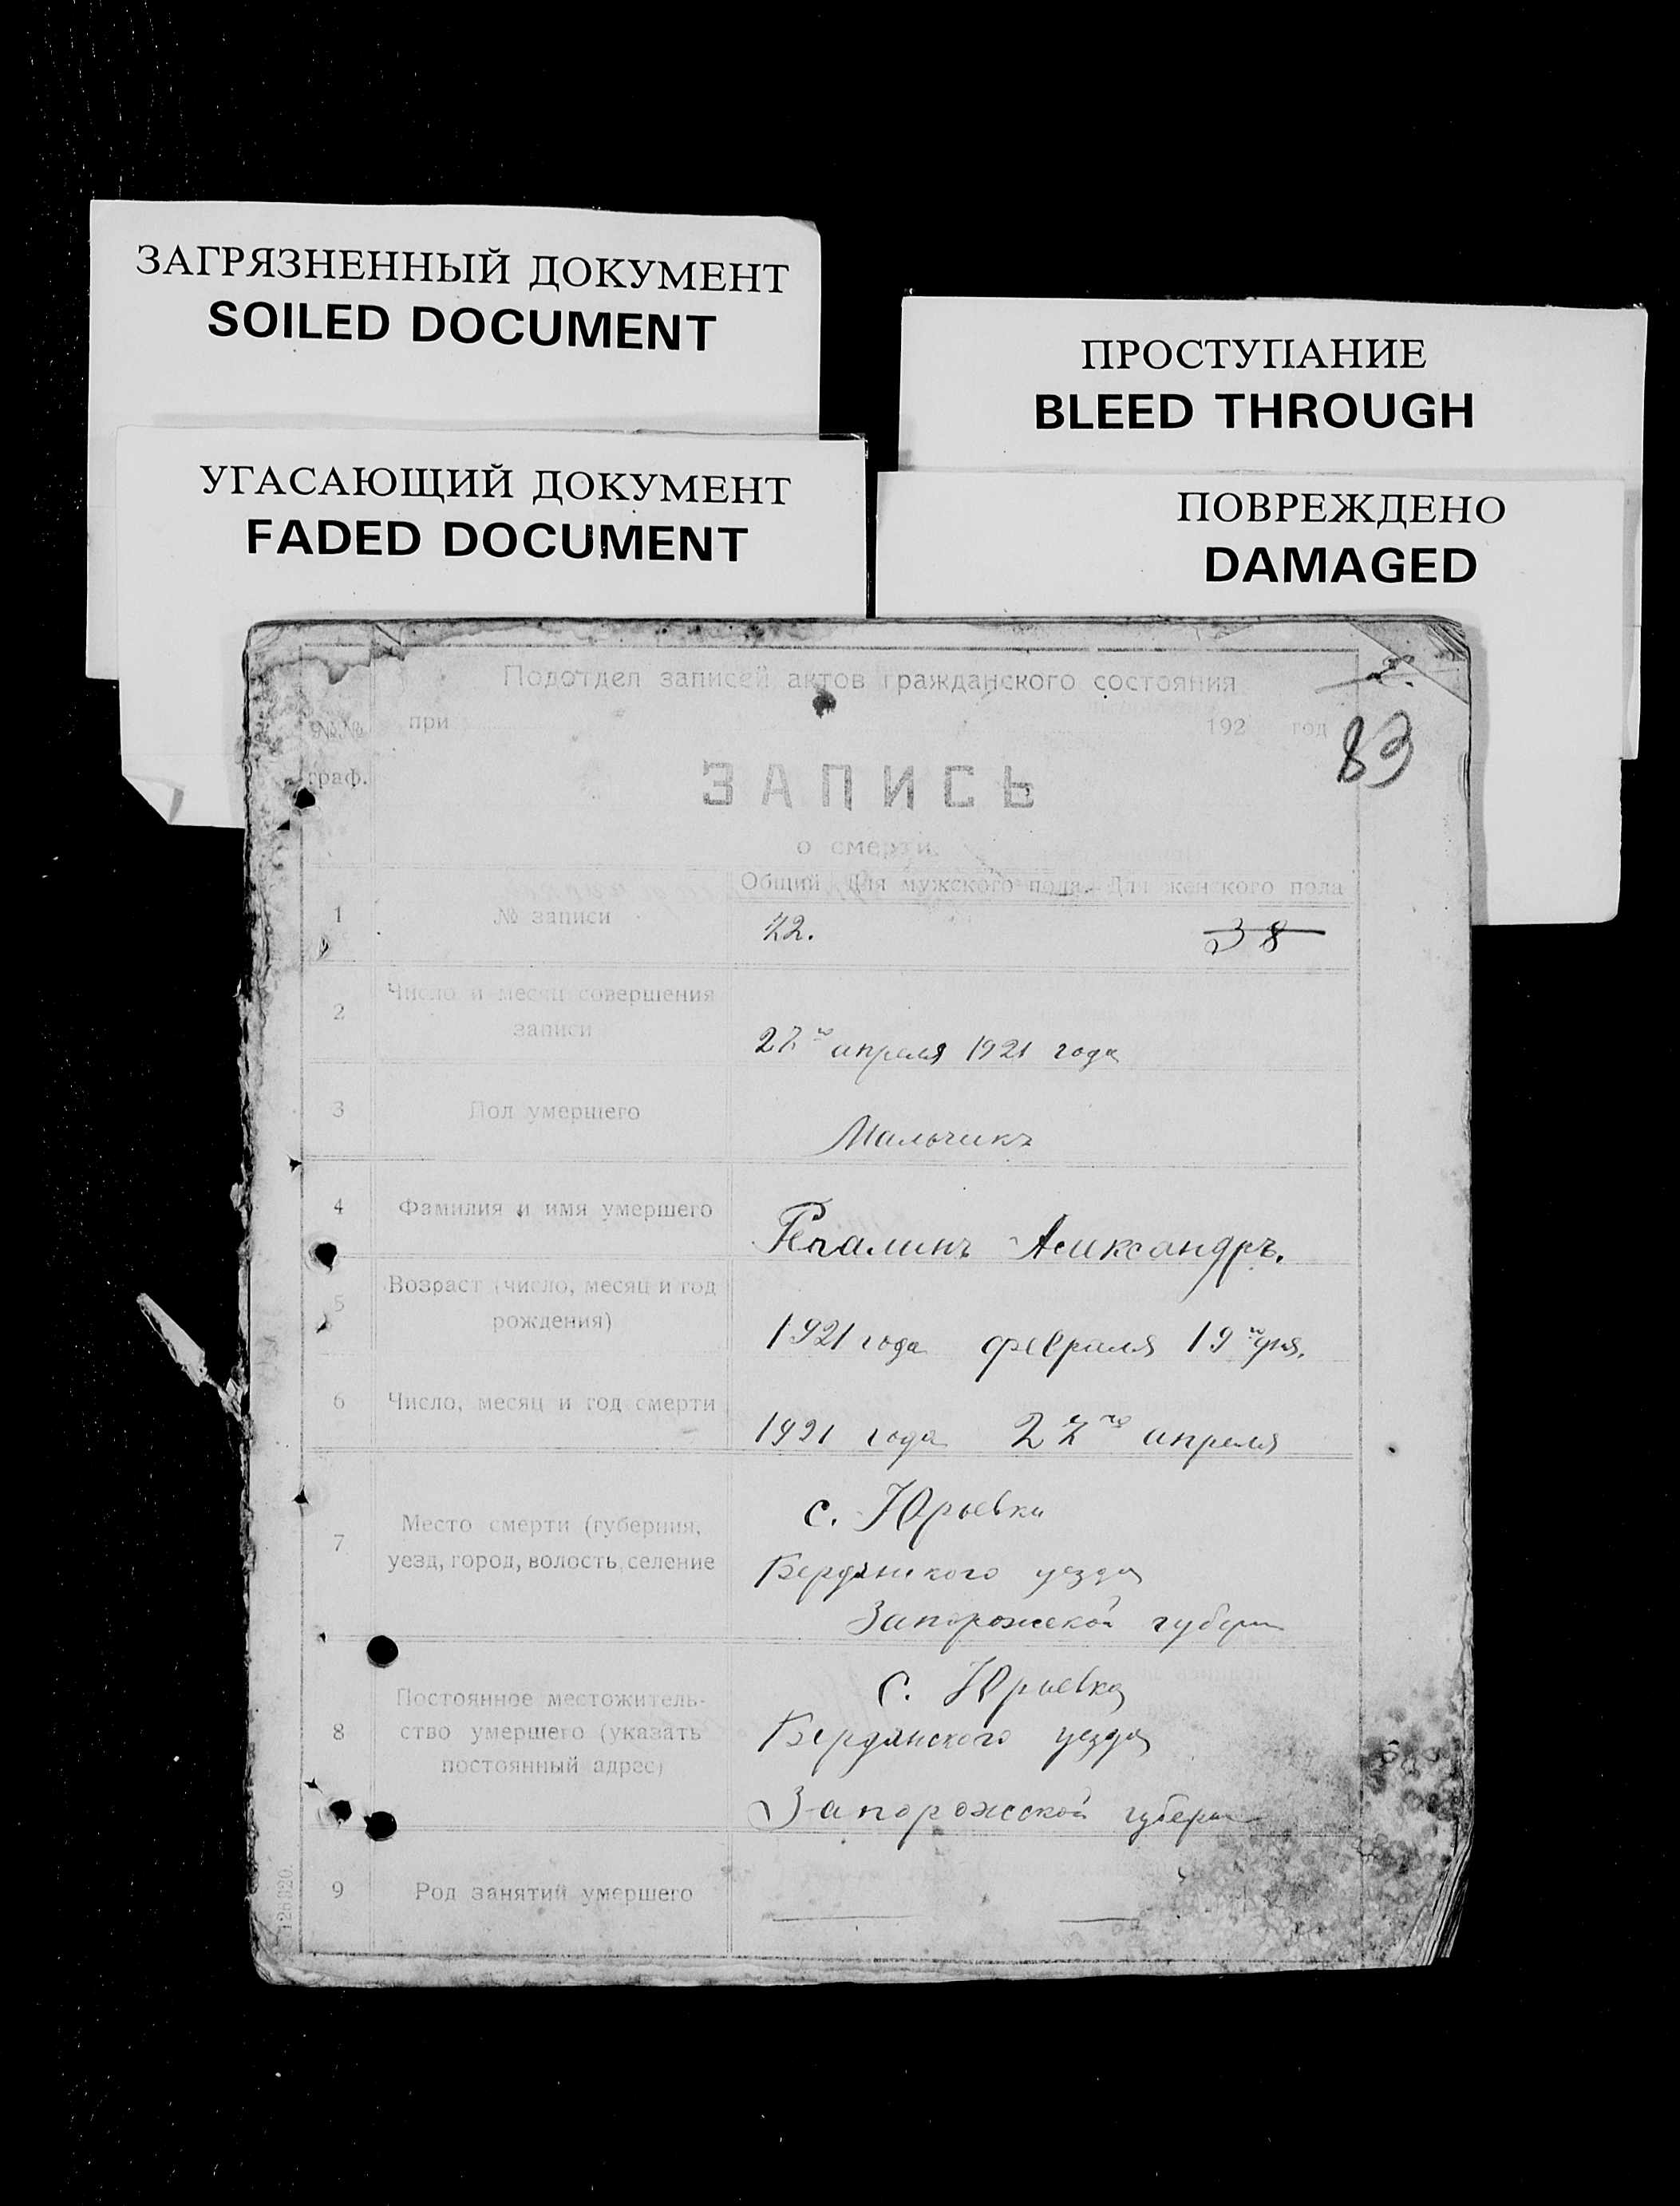 ЗАГРЯЗНЕННЫЙ ДОКУМЕНТ
SOILED DOCUMENT
ПРОСТУПАНИЕ
BLEED THROUGH
УГАСАЮЩИЙ ДОКУМЕНТ
FADED DOCUMENT
ПОВРЕЖДЕНО
DAMAGED
Подотдел записей актов гражданского состояния
№№ граф.
при 192 год
83
ЗАПИСЬ
о смерти.
Общий Для мужского пола Для женского пола
1 № записи
42. 38
2 Число и месяц совершения
записи
27го апреля 1921 года
3 Пол умершего
Мальчикъ
4 Фамилия и имя умершего
Репалинъ Александръ.
5 Возраст (число, месяц и год
рождения)
1921 года февраля 19го дня.
6 Число, месяц и год смерти
1921 года 27го апреля
7 Место смерти (губерния,
уезд, город, волость, селение
с. Юрьевка
Бердянского уезда
Запорожской губерн
8 Постоянное местожитель-
ство умершего (указать
постоянный адрес)
с. Юрьевка
Бердянского уезда
Запорожской губерн
9 Род занятий умершего